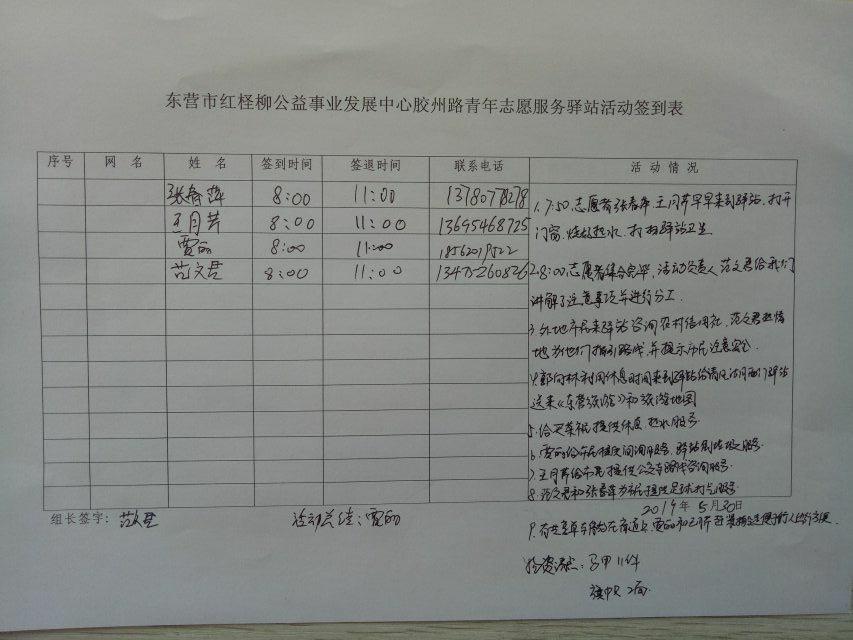 东营市红柽柳公益事业发展中心胶州路青年志愿服务驿站活动签到表
序号 网 名 姓 名 签到时间 签退时间 联系电话 活 动 情 况
张春萍 8:00 11:00 13780778278
王月芹 8:00 11:00 13695468725
贾丽 8:00 11:00 18562019522
范文君 8:00 11:00 13475260826
1. 7:50,志愿者张春萍 王月芹早早来到驿站,打开
门窗,烧好热水,打扫驿站卫生
2. 8:00,志愿者集合完毕,活动负责人范文君给我们
讲解了注意事项并进行分工.
3.外地市民来驿站咨询农村信用社,范文君热情
地为他们指引路线,并提示市民注意安全.
4.郭向林利用休息时间来到驿站给
送来《东营旅游》和旅游地图
5.给 提供休息、热水服务.
6.贾丽给市民提供问询服务,驿站 服务.
7.王月芹给市民提供公交车路线咨询服务.
8.范文君和张春萍为市民提供足球打气服务.
2019年5月30日
组长签字:范文君 活动总结:贾丽
9.有 单车 在 道上,贾丽和王月芹 行人 .
物资清点:马甲11件
旗帜2面.